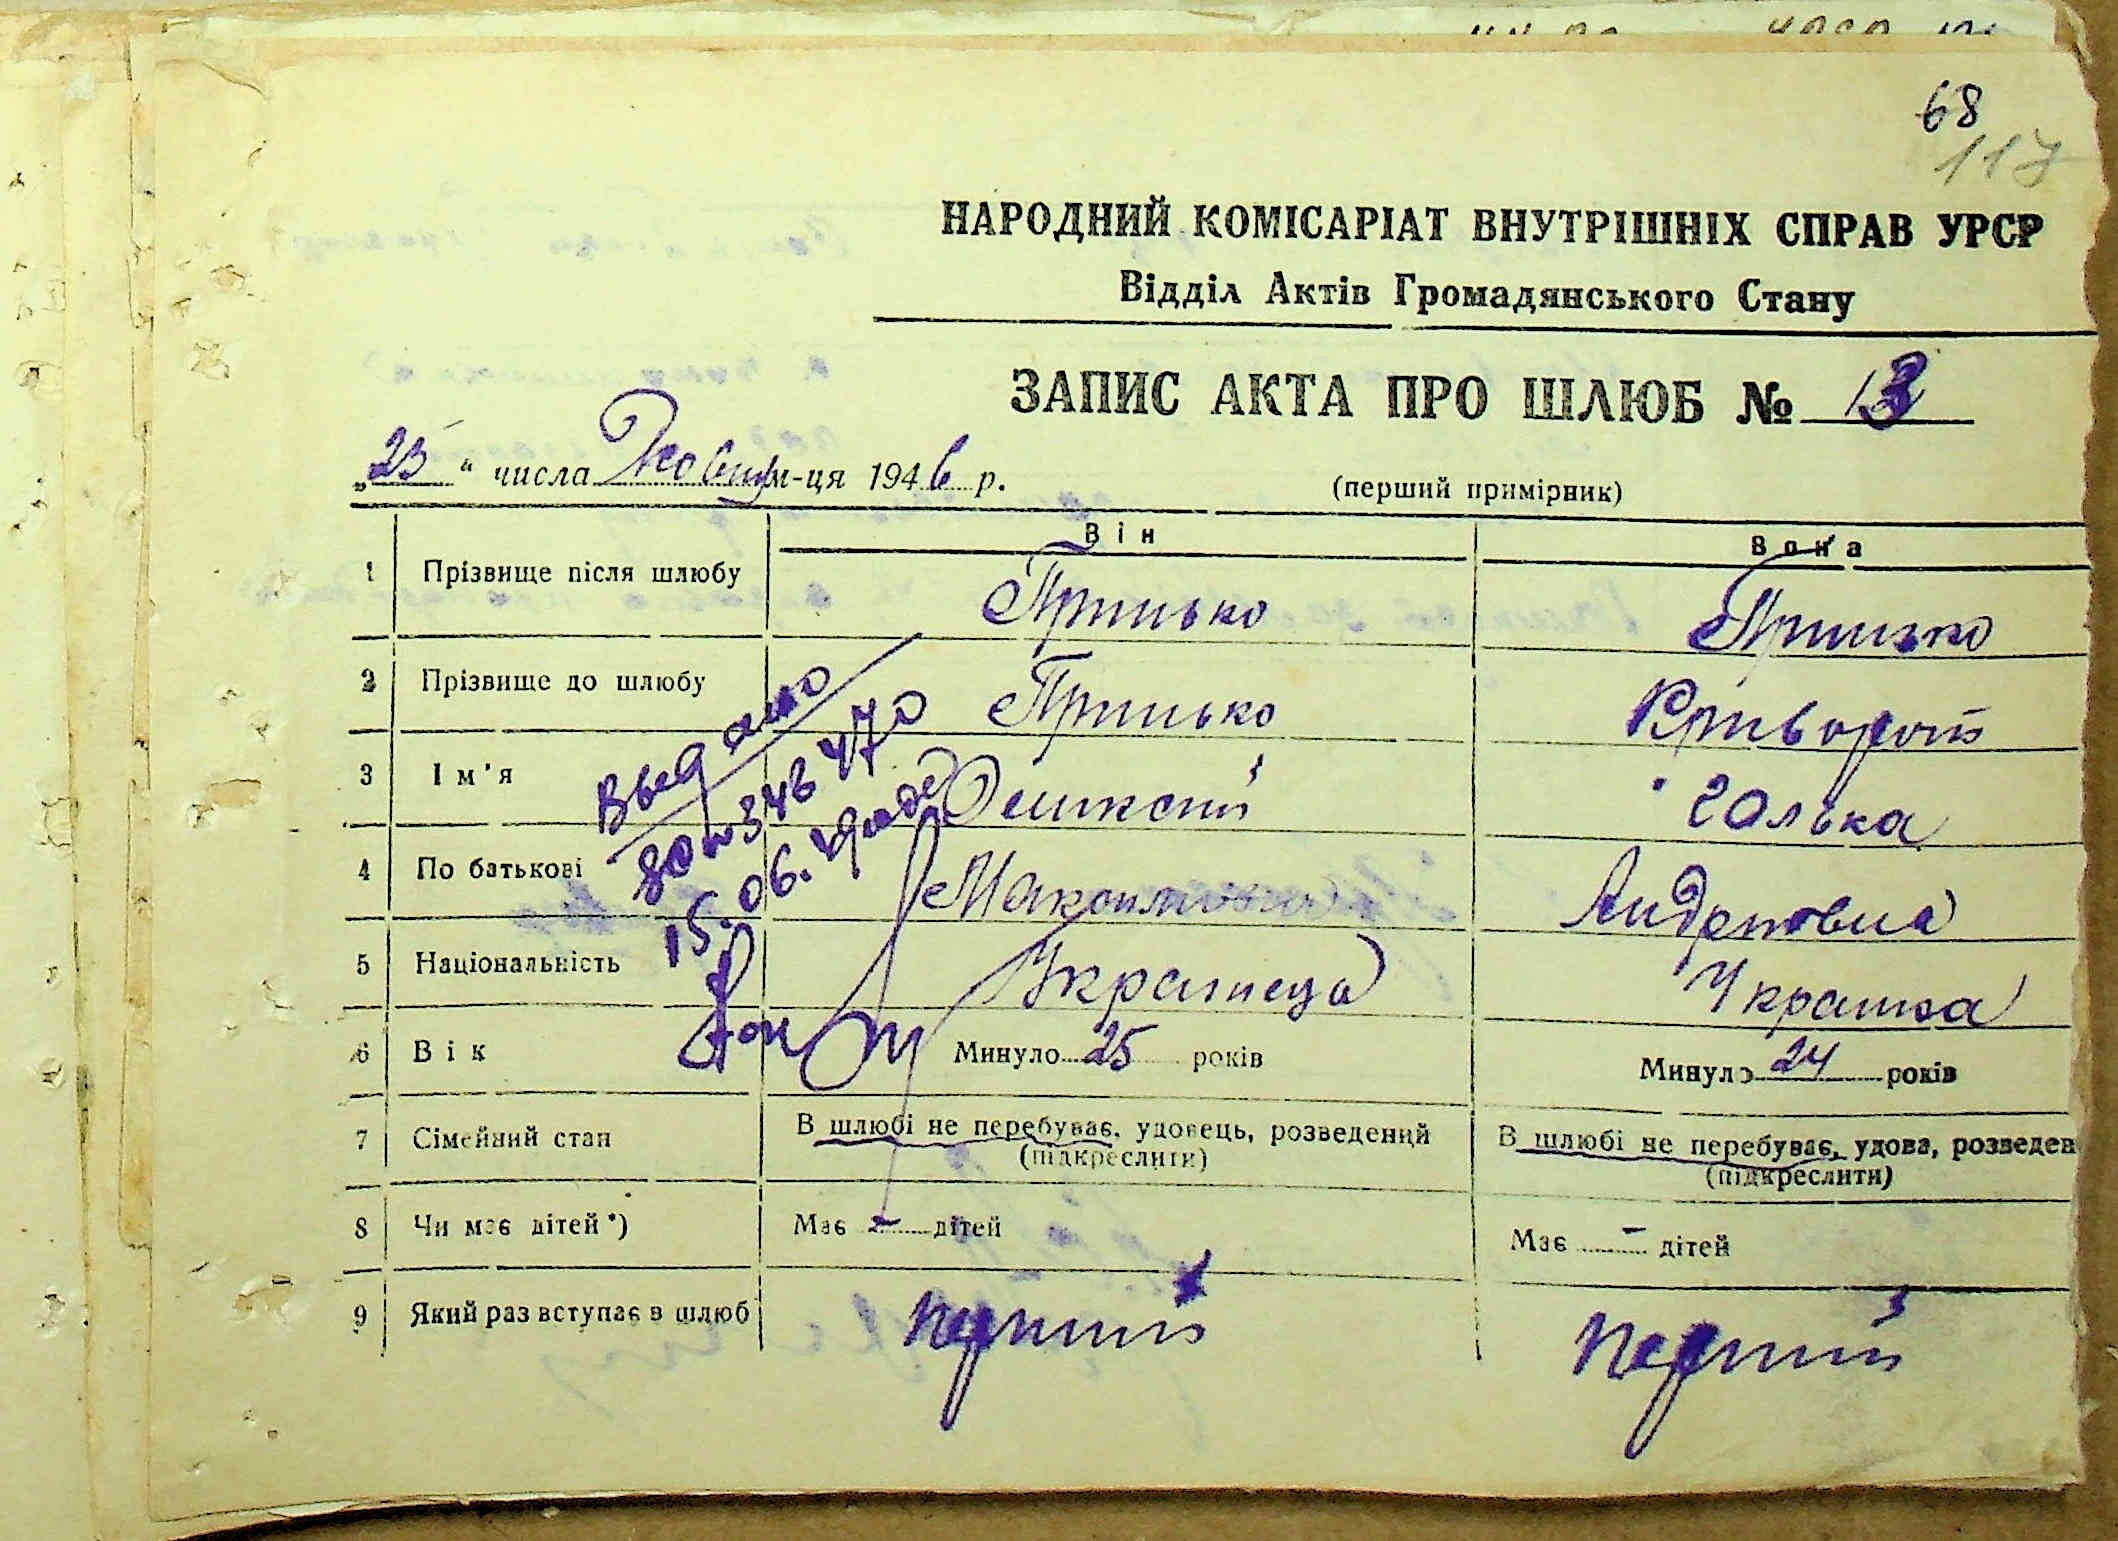 68
117
НАРОДНИЙ КОМІСАРІАТ ВНУТРІШНІХ СПРАВ УРСР
Відділ Актів Громадянського Стану
ЗАПИС АКТА ПРО ШЛЮБ № 13
„25“ числа м-ця 1946 р.
(перший примірник)
Він
Вона
1 Прізвище після шлюбу Принько Принько
2 Прізвище до шлюбу Принько Криворот
3 Ім'я Галька
4 По батькові Максимович Андреевна
5 Національність Украинец Украинка
6 Вік Минуло 25 років Минуло 24 років
7 Сімейний стан В шлюбі не перебуває, удовець, розведений (підкреслити) В шлюбі не перебуває, удова, розведен (підкреслити)
8 Чи має дітей*) Має - дітей Має - дітей
9 Який раз вступає в шлюб перший перший
Выдано
347470
15.06.